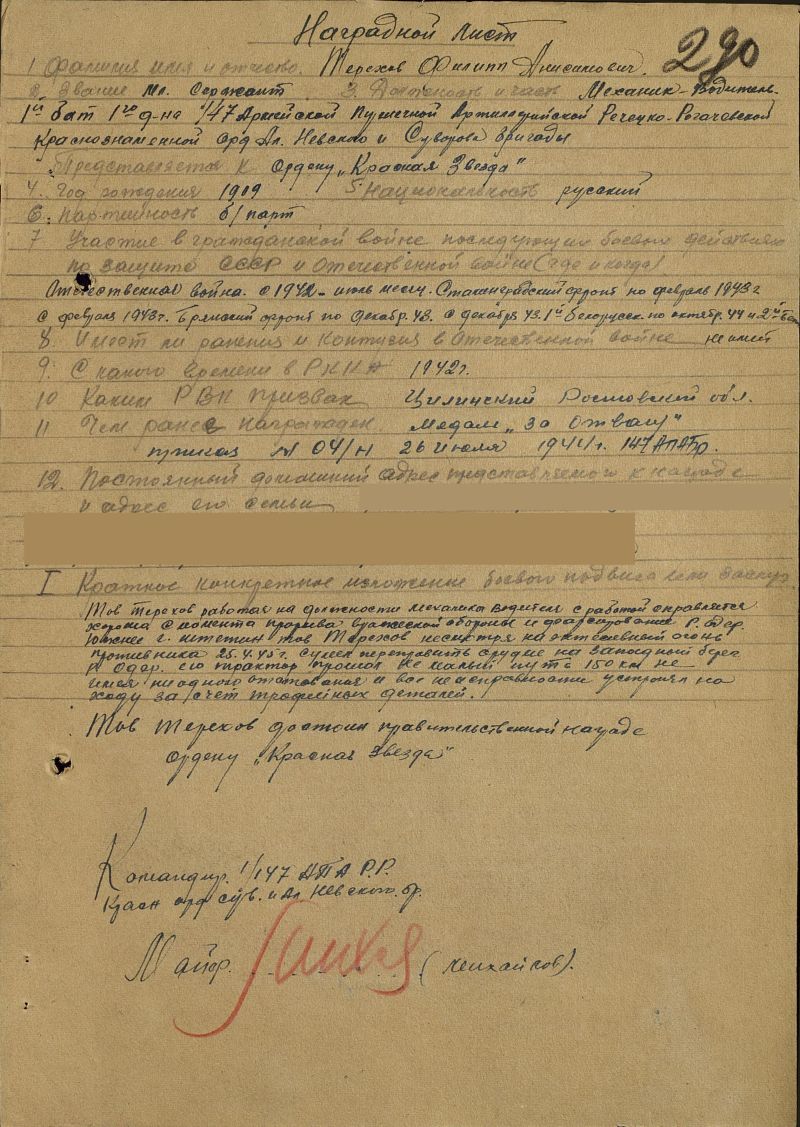 Наградной лист
290
1 Фамилия имя и отчество. Терехов Филипп Анисимович.
2. Звание Мл. Сержант 3. Должность и часть Механик-Водитель.
1ой бат 1го д-на 1/47 Армейской Пушечной Артиллерийской Речецко-Рогачевской
Краснознаменной орд Ал. Невского и Суворова бригады
Представляется к Ордену „Красная Звезда"
4. Год рождения 1909 5. Национальность русский
6. Партийность б/парт
7 Участие в гражданской войне последующим боевым действиям
по защите СССР и Отечественной войне (где и когда)
Отечественная война. с 1942 - июль месяц. Сталинградский фронт по февраль 1943г
с февраля 1943г. Брянский фронт по декабр. 43. с декабря 43. 1й Белорусск. по октябр. 44 и 2й Бел
8. Имеет ли ранения и контузия в Отечественной войне не имеет
9. С какого времени в РККА 1942г.
10 Каким РВК призван Целинский Ростовской обл.
11 Чем ранее награжден Медаль „За Отвагу"
приказ № 04/н 26 июля 1944г. 147 АПАБр.
12. Постоянный домашний адрес представляемого к награде
и адрес его семьи
I Краткое конкретное изложение боевого подвига или заслуг
Тов Терехов работая на должности механика водителя с работой справляется
хорошо с момента прорыва вражеской обороны и форсирования р. Одер.
Южнее г. Штетин тов Терехов несмотря на интенсивный огонь
противника 25.4.45г. сумел переправить орудие на западный берег
р. Одер. его трактор прошел не малый путь 150 км не
имея ни одного отставания и все неисправности устранял на
ходу за счет трофейных деталей.
Тов Терехов достоин правительственной награде
ордену „Красная Звезда"
Командир 1/147 АПА Р.Р.
Красн орд Сув. и Ал Невского бр.
Майор. (Михайлов).